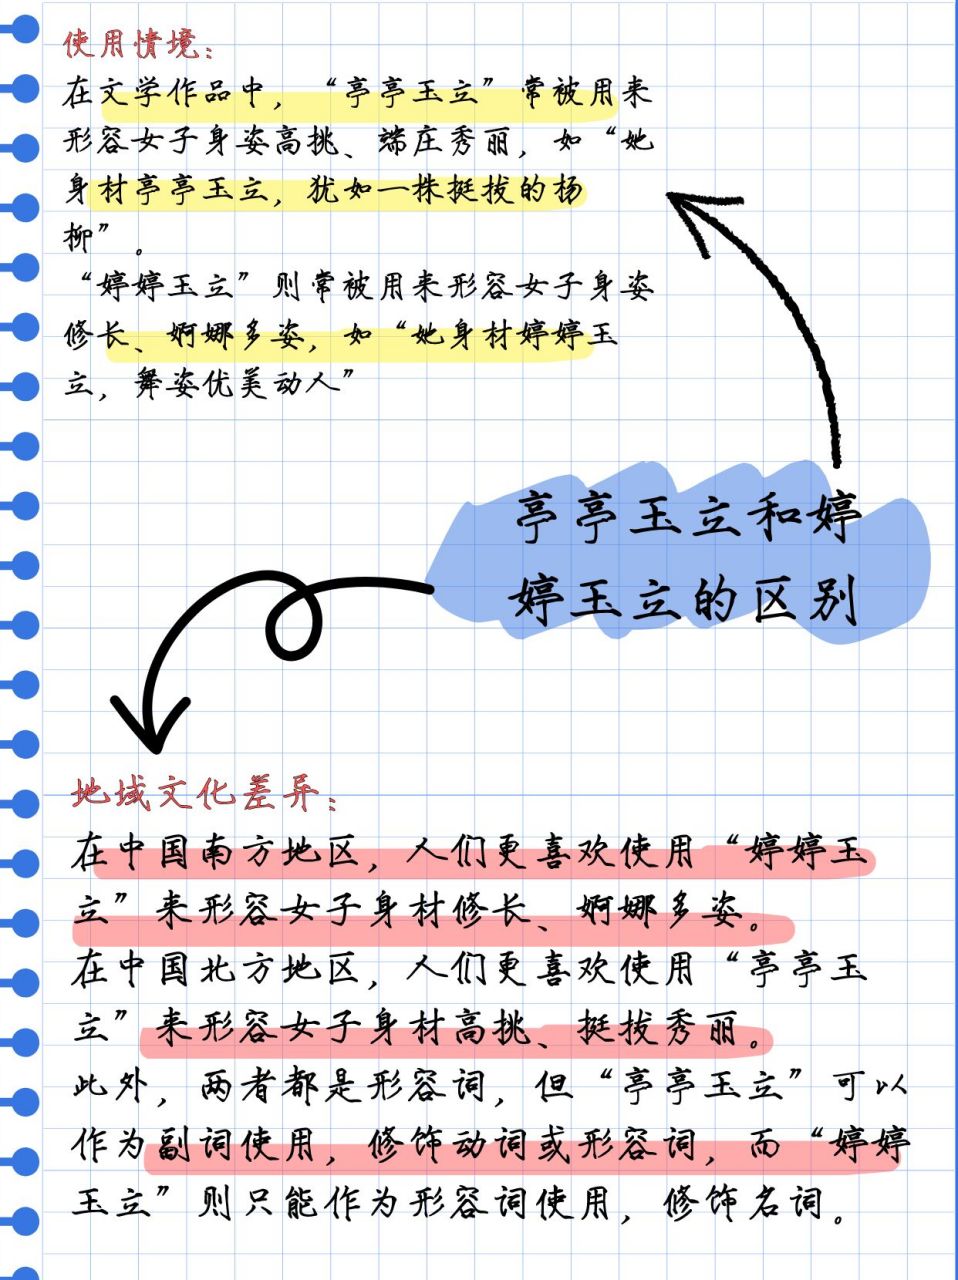 使用情境：
在文学作品中，“亭亭玉立”常被用来
形容女子身姿高挑、端庄秀丽，如“她
身材亭亭玉立，犹如一株挺拔的杨
柳”。
“婷婷玉立”则常被用来形容女子身姿
修长、婀娜多姿，如“她身材婷婷玉
立，舞姿优美动人”
亭亭玉立和婷
婷玉立的区别
地域文化差异：
在中国南方地区，人们更喜欢使用“婷婷玉
立”来形容女子身材修长、婀娜多姿。
在中国北方地区，人们更喜欢使用“亭亭玉
立”来形容女子身材高挑、挺拔秀丽。
此外，两者都是形容词，但“亭亭玉立”可以
作为副词使用，修饰动词或形容词，而“婷婷
玉立”则只能作为形容词使用，修饰名词。